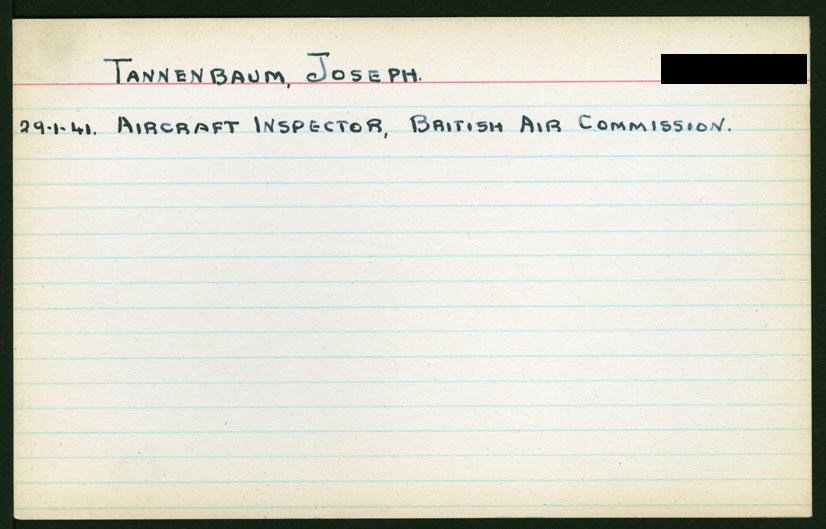 TANNENBAUM, JOSEPH.
29.1.41. AIRCRAFT INSPECTOR, BRITISH AIR COMMISSION.